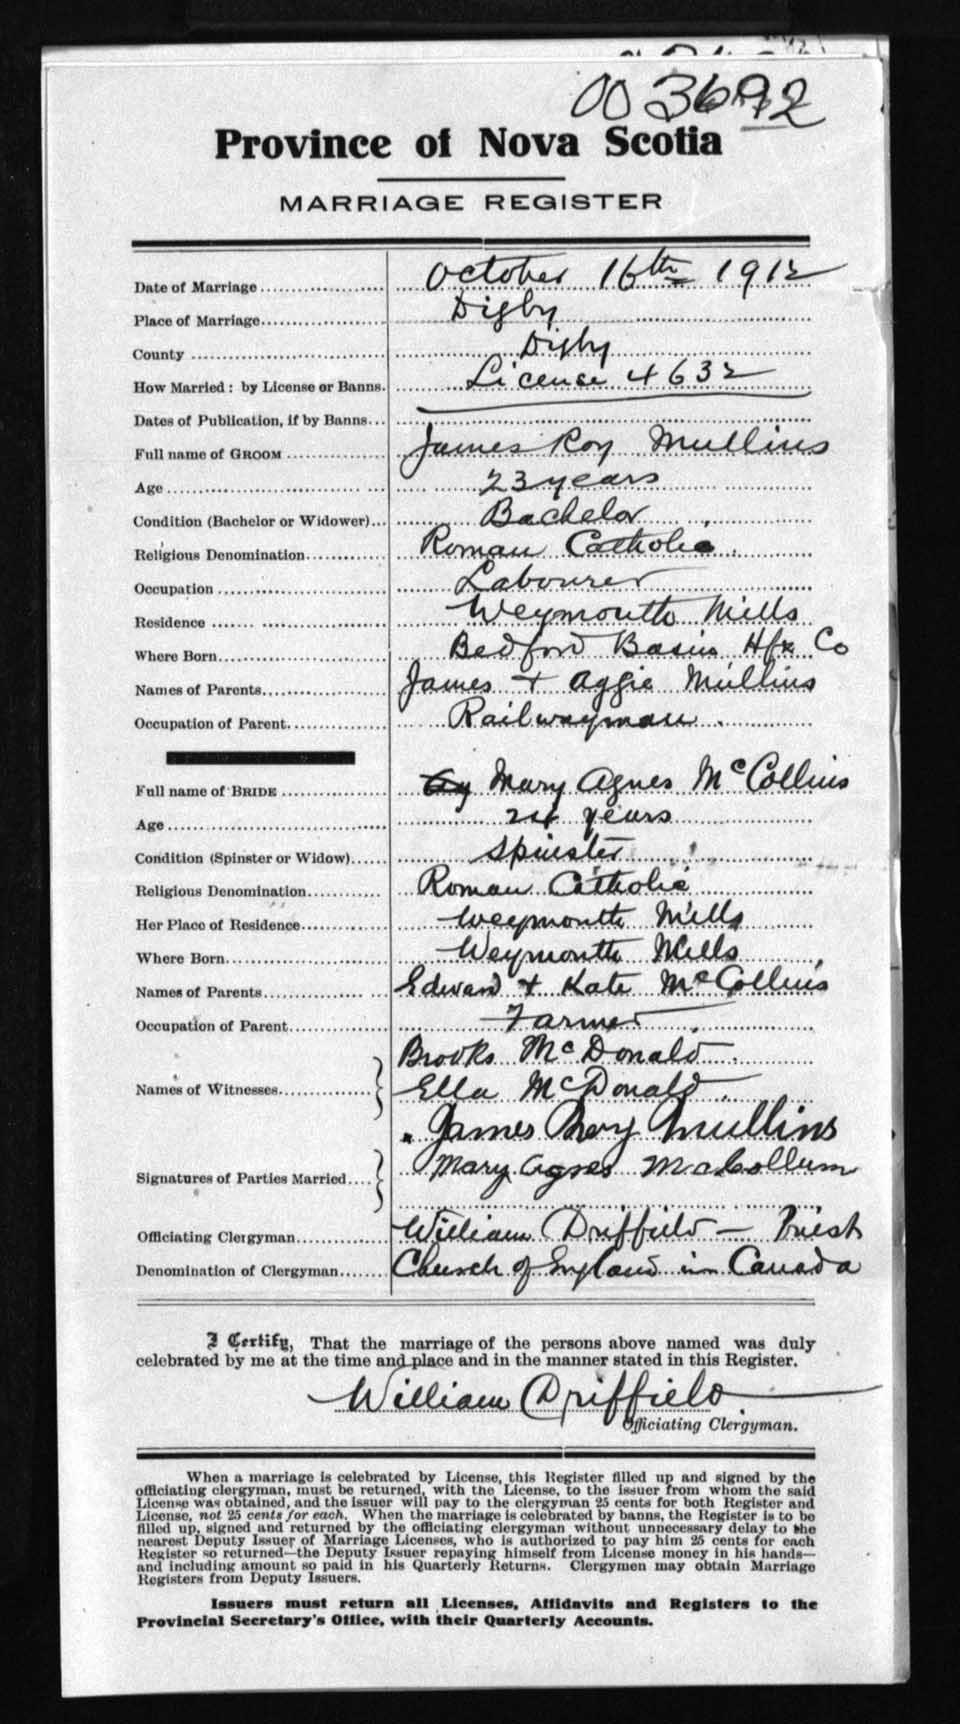 003692
Province of Nova Scotia
MARRIAGE REGISTER
Date of Marriage October 16th 1912
Place of Marriage Digby
County Digby
How Married: by License or Banns. License 4632
Dates of Publication, if by Banns
Full name of GROOM James Roy Mullins
Age 23 years
Condition (Bachelor or Widower) Bachelor
Religious Denomination Roman Catholic
Occupation Labourer
Residence Weymouth Mills
Where Born Bedford Basin Hfx Co
Names of Parents James + Aggie Mullins
Occupation of Parent Railwayman
Full name of BRIDE Mary Agnes McCollins
Age 24 years
Condition (Spinster or Widow) Spinster
Religious Denomination Roman Catholic
Her Place of Residence Weymouth Mills
Where Born Weymouth Mills
Names of Parents Edward + Kate McCollins
Occupation of Parent Farmer
Brooks McDonald
Names of Witnesses Ella McDonald
James Roy Mullins
Signatures of Parties Married Mary Agnes McCollum
Officiating Clergyman William Driffield — Priest
Denomination of Clergyman Church of England in Canada
I Certify, That the marriage of the persons above named was duly
celebrated by me at the time and place and in the manner stated in this Register.
William Driffield
Officiating Clergyman.
When a marriage is celebrated by License, this Register filled up and signed by the
officiating clergyman, must be returned, with the License, to the issuer from whom the said
License was obtained, and the issuer will pay to the clergyman 25 cents for both Register and
License, not 25 cents for each. When the marriage is celebrated by banns, the Register is to be
filled up, signed and returned by the officiating clergyman without unnecessary delay to the
nearest Deputy Issuer of Marriage Licenses, who is authorized to pay him 25 cents for each
Register so returned—the Deputy Issuer repaying himself from License money in his hands—
and including amount so paid in his Quarterly Returns. Clergymen may obtain Marriage
Registers from Deputy Issuers.
Issuers must return all Licenses, Affidavits and Registers to the
Provincial Secretary's Office, with their Quarterly Accounts.